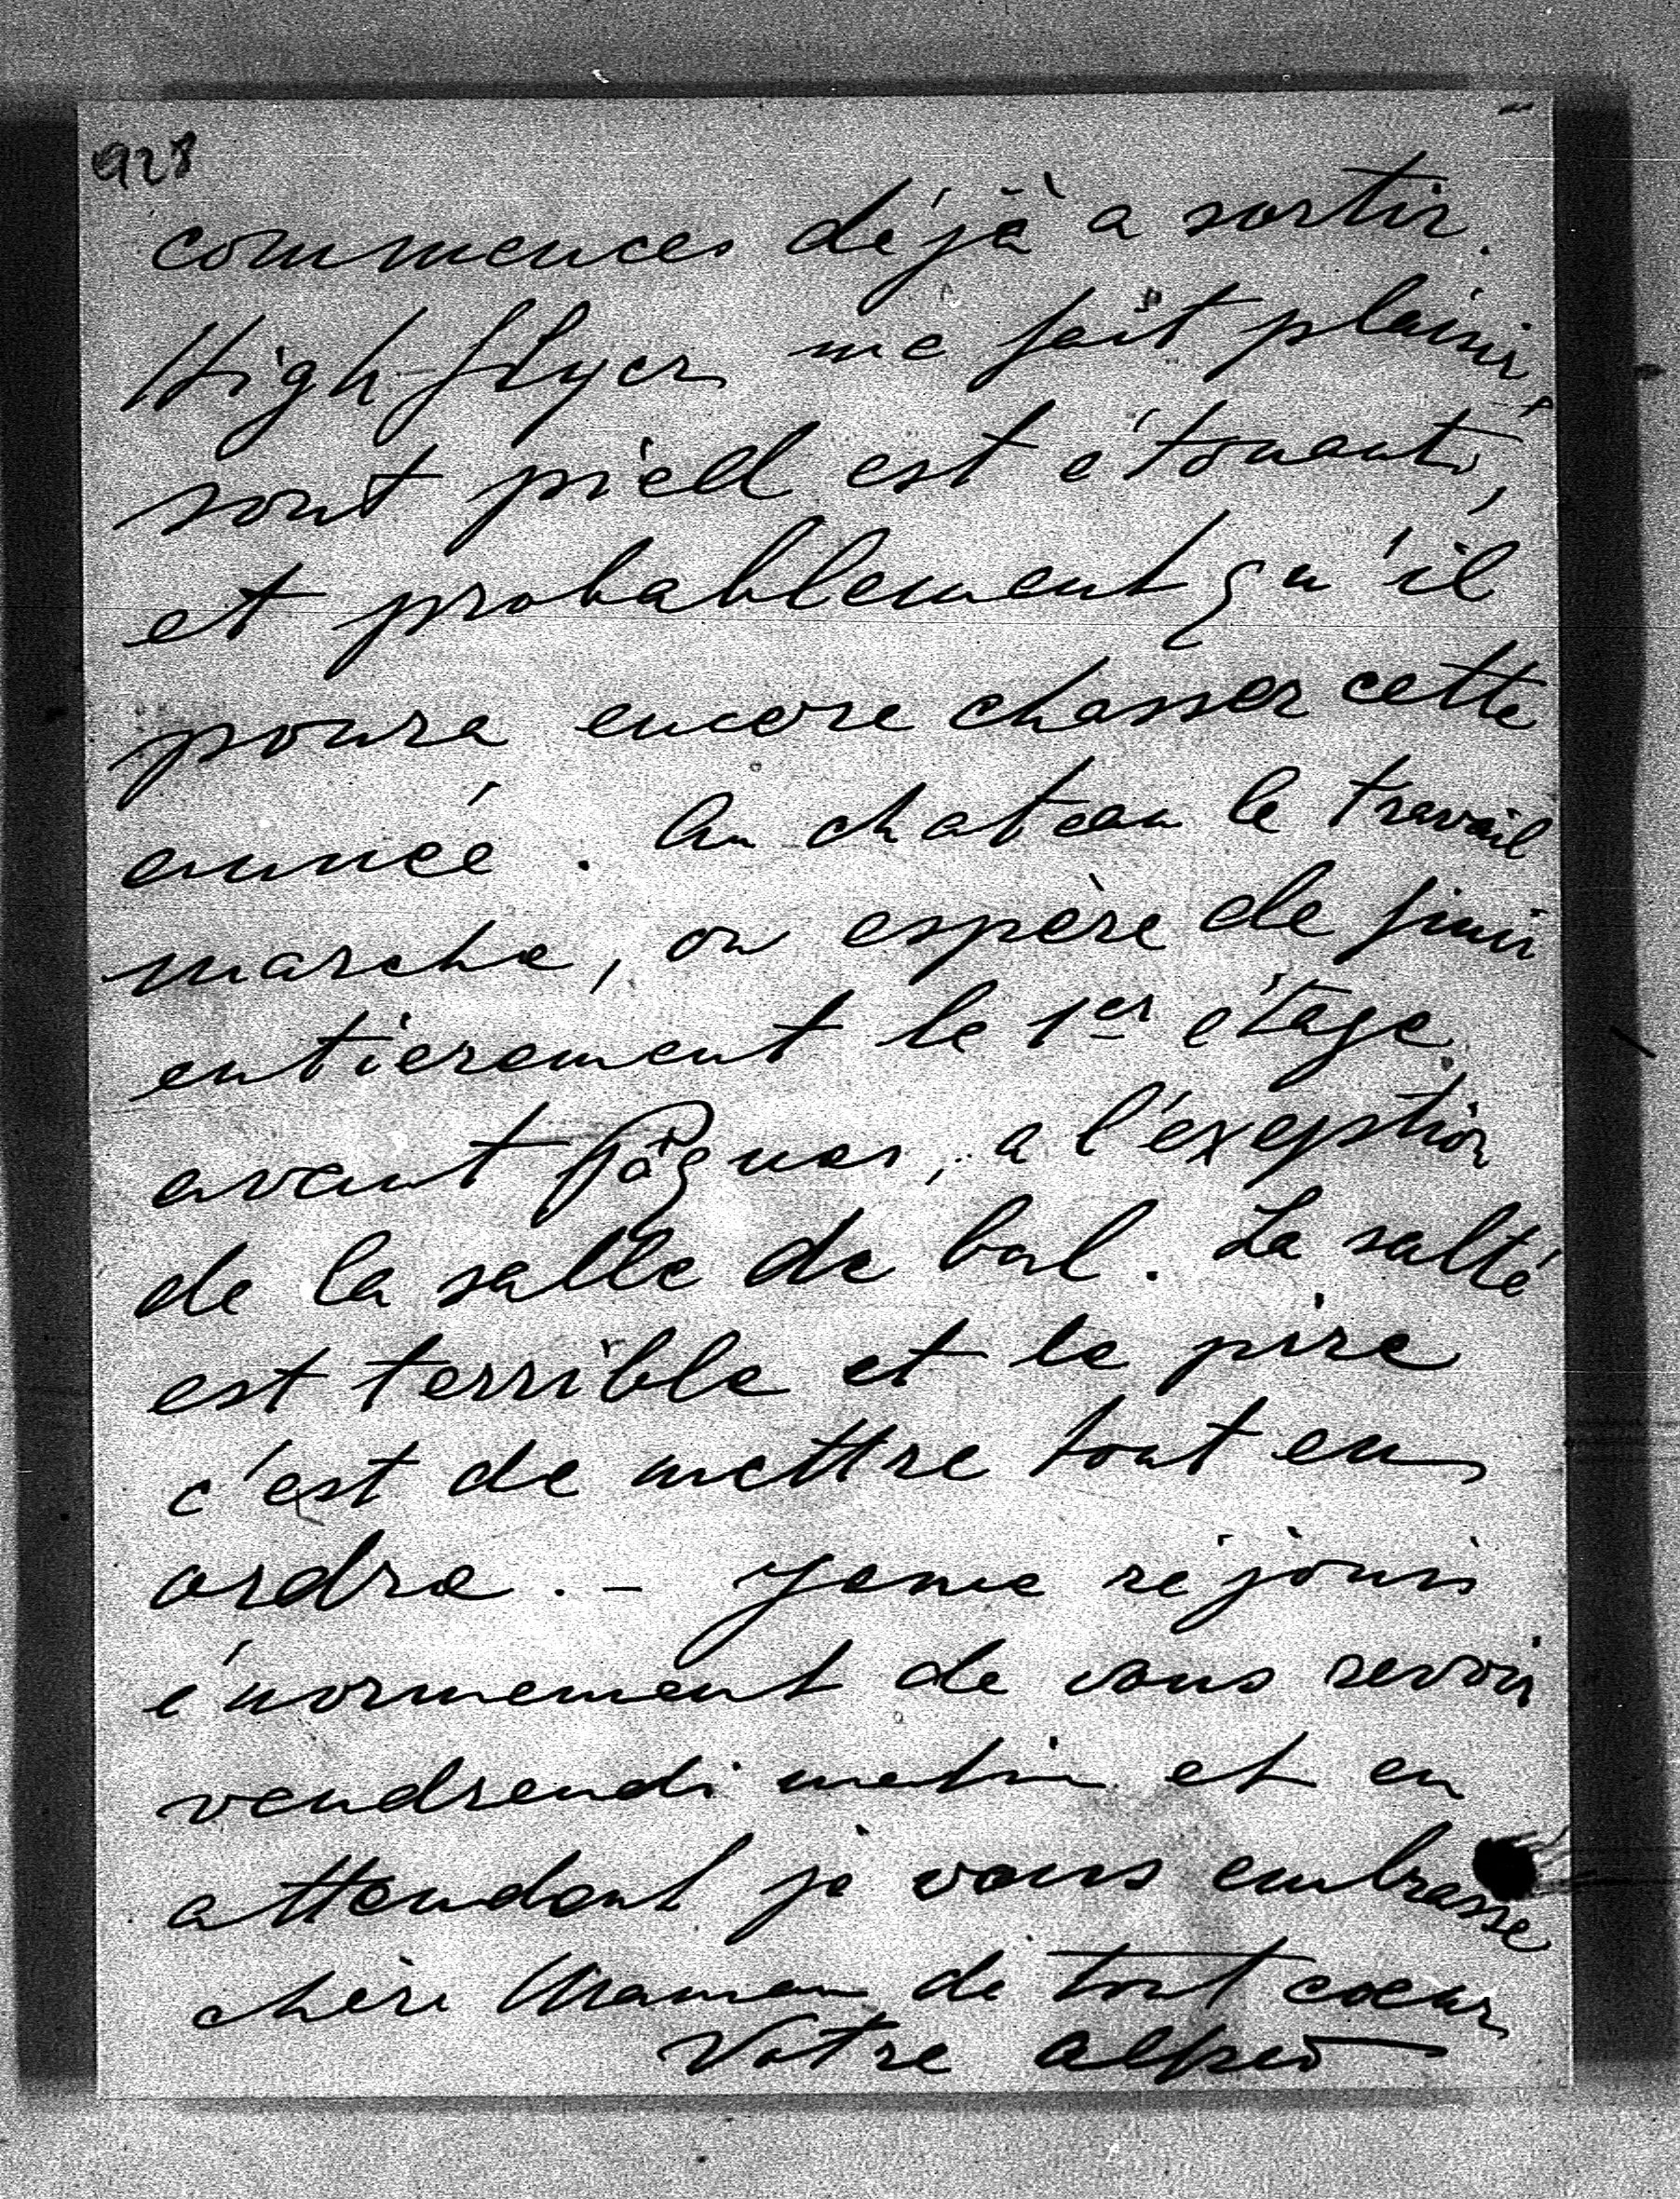 928
commences déjà a sortir.
High-flyer me fait plaisir,
sont pied est étonant,
et probablement qu'il
poura encore chasser cette
anneé. Au chateau le travail
marche, on espère de finir
entierement le 1er étage
avant Pâques, a l'éxeption
de la salle de bal. La salté
est terrible et le pire
c'est de mettre tout en
ordre. - Je me réjouis
énormement de vous revoir
vendrendi matin et en
attendant je vous embrasse
chère Maman de tout coeur
Votre Alfred